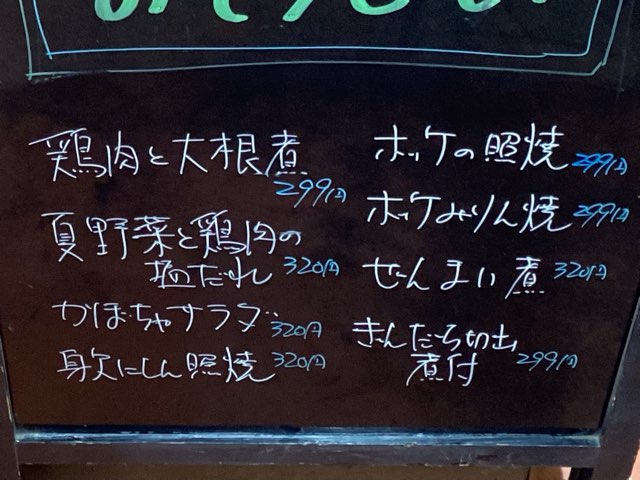 鶏肉と大根煮
299円
夏野菜と鶏肉の
塩だれ 320円
かぼちゃサラダ 320円
身欠にしん照焼 320円
ホッケの照焼 299円
ホッケみりん焼 299円
ぜんまい煮 320円
ぎんだら切出し
煮付 299円